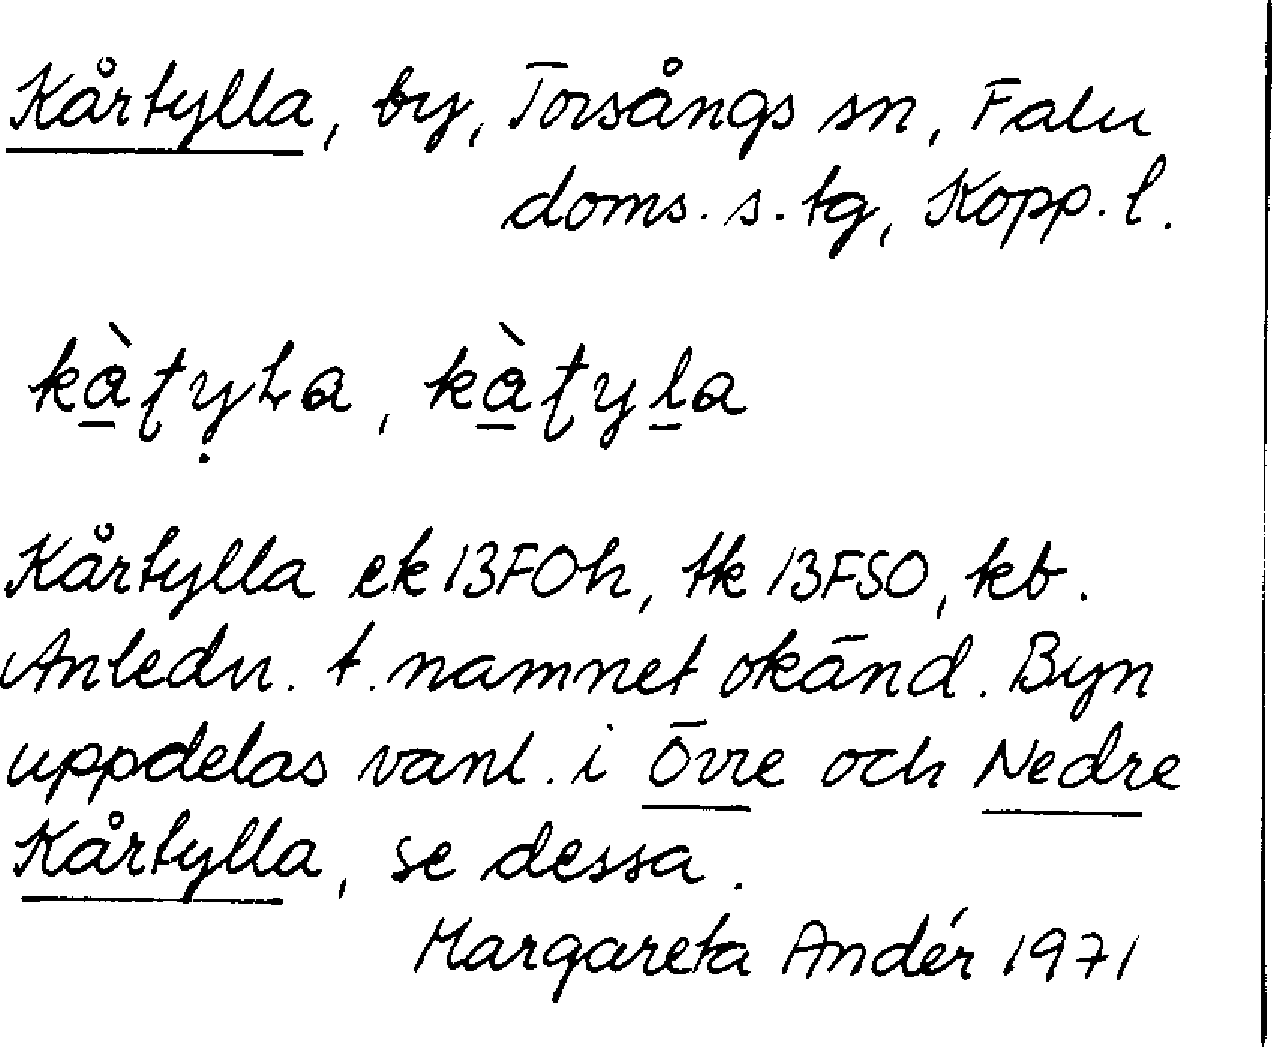 Kårtylla, by, Torsångs sn, Falu
doms. s. tg, Kopp. l.
Kårtylla ek 13F0h, tk 13FSO, kb.
Anledn. t. namnet okänd. Byn
uppdelas vanl. i Övre och Nedre
Kårtylla, se dessa.
Margareta Andér 1971